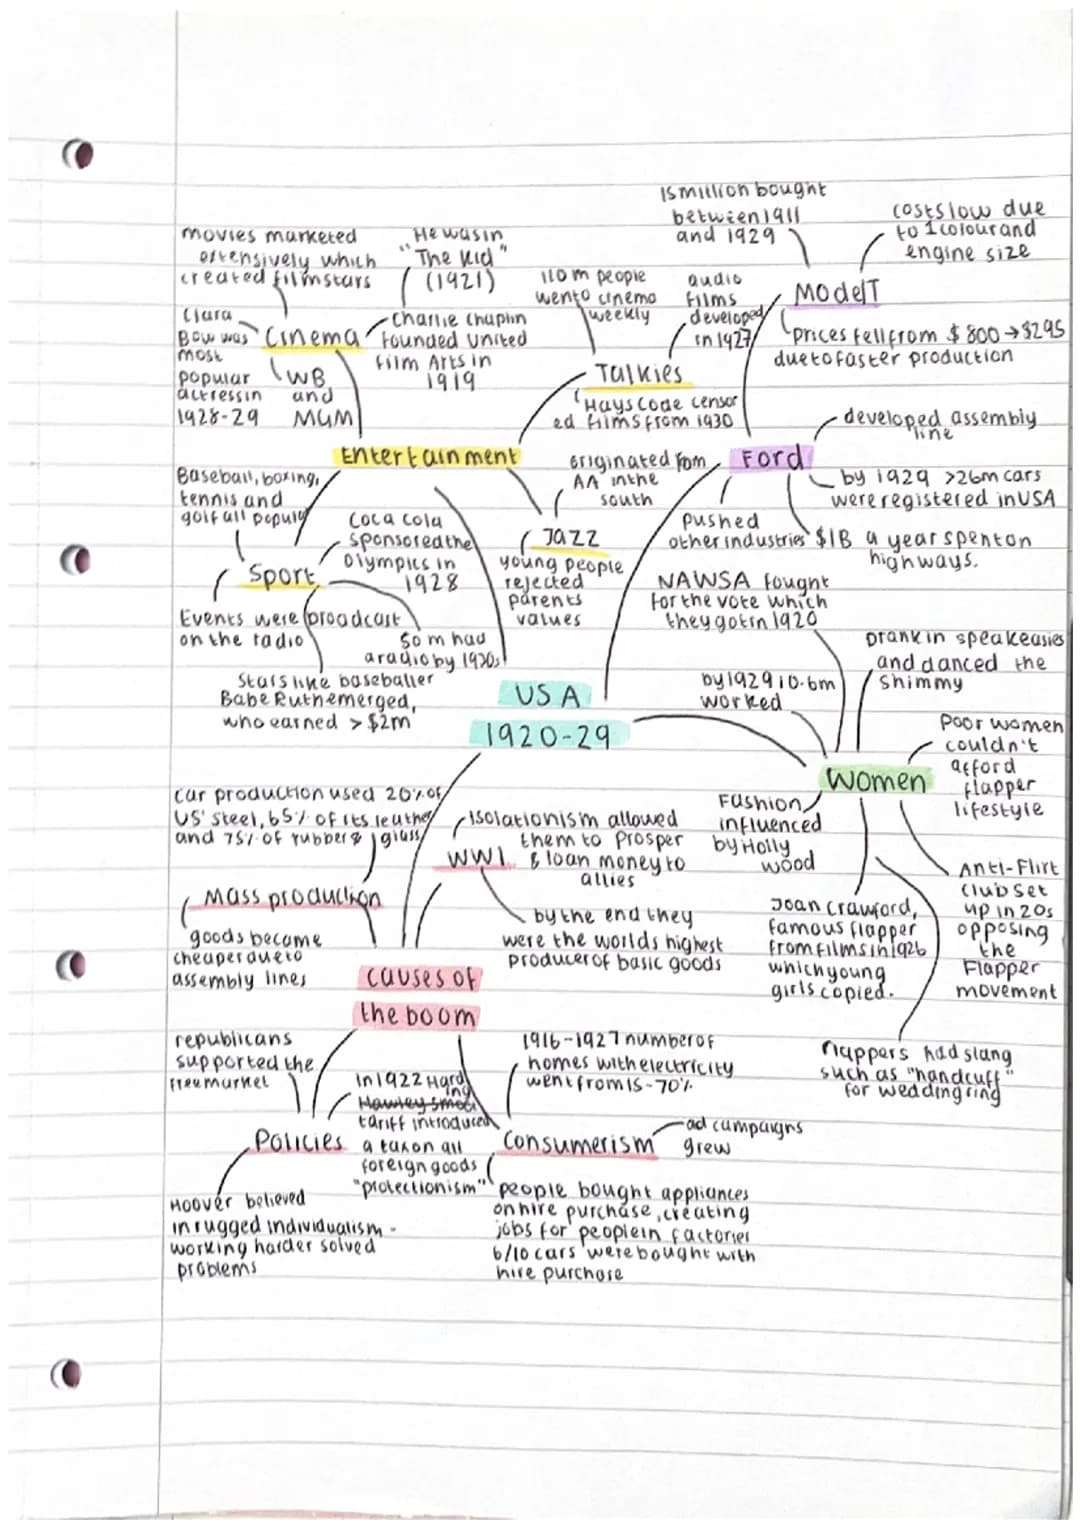 15 million bought
between 1911
and 1929
costs low due
to 1 colour and
engine size
Model T
Prices fell from $800→$295
due to faster production
movies marketed
extensively which
created filmstars
He was in
"The Kid"
(1921)
Clara
Bow was
most
popular
actress in
1928-29
Cinema
Charlie Chaplin
founded United
film Arts in
1919
WB
and
MGM
110m people
went to cinema
weekly
audio
films
developed
in 1927
Talkies
Hays Code censor
ed films from 1930
Entertainment
Ford
developed assembly
line
by 1929 >26m cars
were registered in USA
pushed
other industries
$1B a year spent on
highways.
Baseball, boxing,
tennis and
golf all popular
Sport
Coca Cola
sponsored the
Olympics in
1928
Events were broadcast
on the radio
50m had
a radio by 1930s
Stars like baseballer
Babe Ruth emerged,
who earned > $2m
originated from
AA in the
south
Jazz
young people
rejected
parents
values
USA
1920-29
NAWSA fought
for the vote which
they got in 1920
by 1929 10.6m
worked
Drank in speakeasies
and danced the
shimmy
Women
Poor women
couldn't
afford
flapper
lifestyle
Fashion
influenced
by Holly
wood
Joan Crawford,
famous flapper
from films in 1926
which young
girls copied.
Anti-Flirt
Club set
up in 20s
opposing
the
Flapper
movement
Flappers had slang
such as "handcuff"
for wedding ring
car production used 20% of
US' steel, 65% of its leather
and 75% of rubber & glass
Mass production
goods become
cheaper due to
assembly lines
isolationism allowed
them to prosper
& loan money to
allies
WW1
by the end they
were the worlds highest
producer of basic goods
causes of
the boom
republicans
supported the
free market
Policies
In 1922 Hard
ing
Hawley Smoot
tariff introduced
a tax on all
foreign goods
"protectionism"
Hoover believed
in rugged individualism -
working harder solved
problems
1916-1927 number of
homes with electricity
went from 15-70%
Consumerism
ad campaigns
grew
people bought appliances
on hire purchase, creating
jobs for people in factories
6/10 cars were bought with
hire purchase